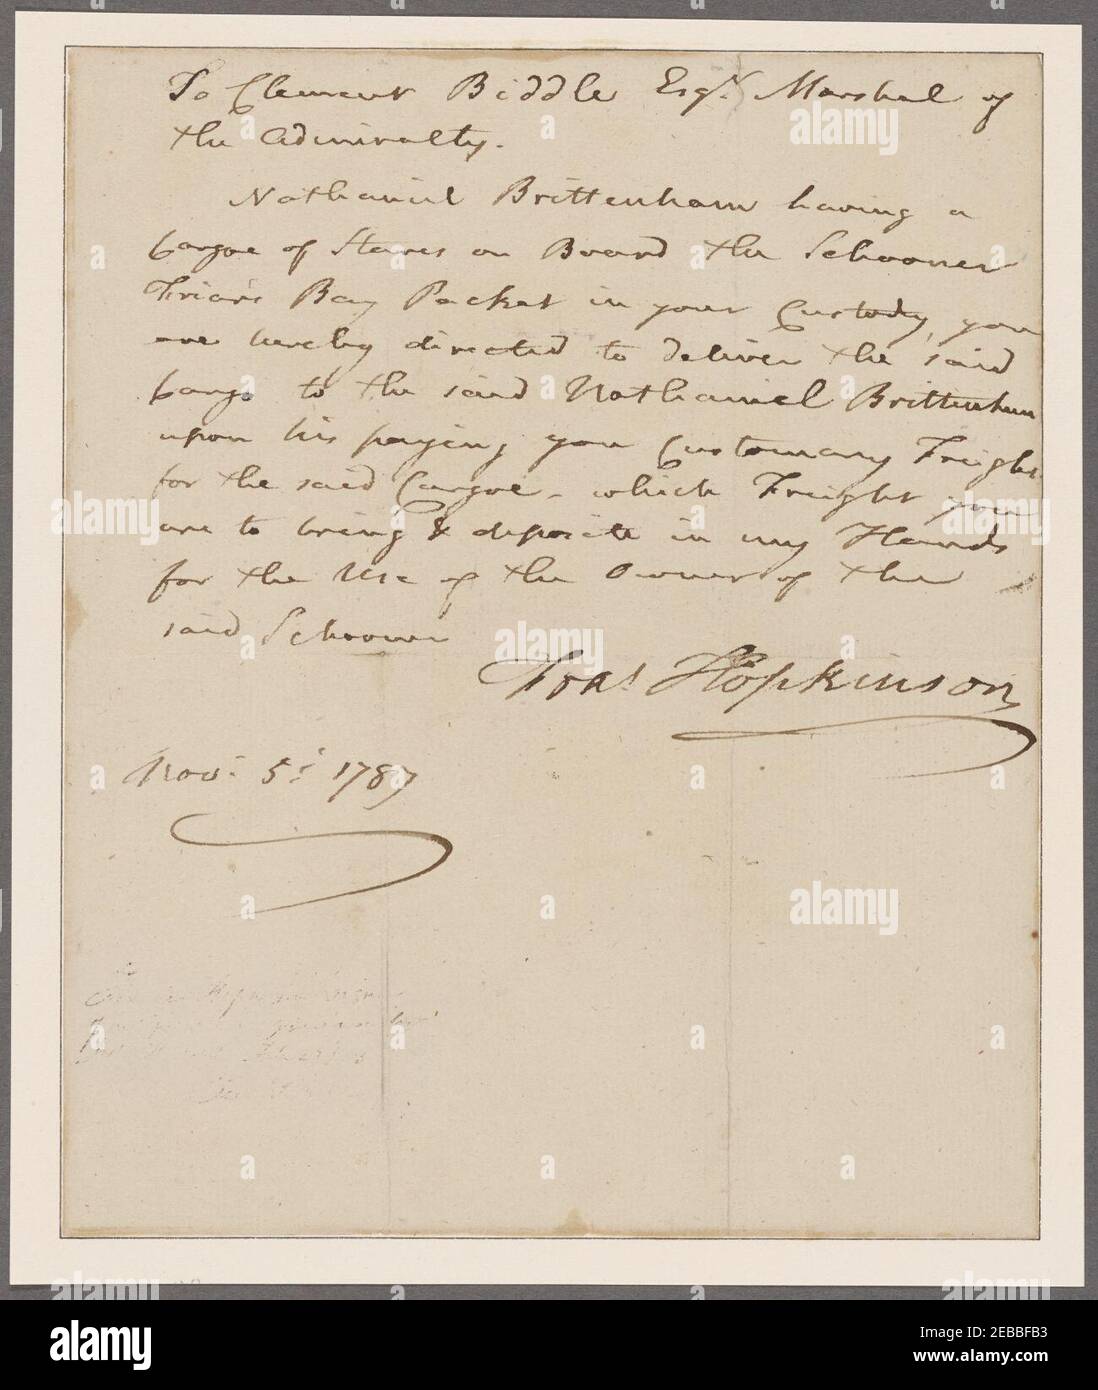 To Clement Biddle Esqr. Marshal of
the Admiralty.
Nathaniel Brittenham having a
Cargoe of Staves on Board the Schooner
Friar's Bay Packet in your Custody, you
are hereby directed to deliver the said
Cargo to the said Nathaniel Brittenham
upon his paying you Customary Freight
for the said Cargoe - which Freight you
are to bring & deposite in my Hands
for the Use of the Owner of the
said Schooner
Fras. Hopkinson
Nov: 5: 1787
alamy
alamy
Image ID: 2EBBFB3
www.alamy.com